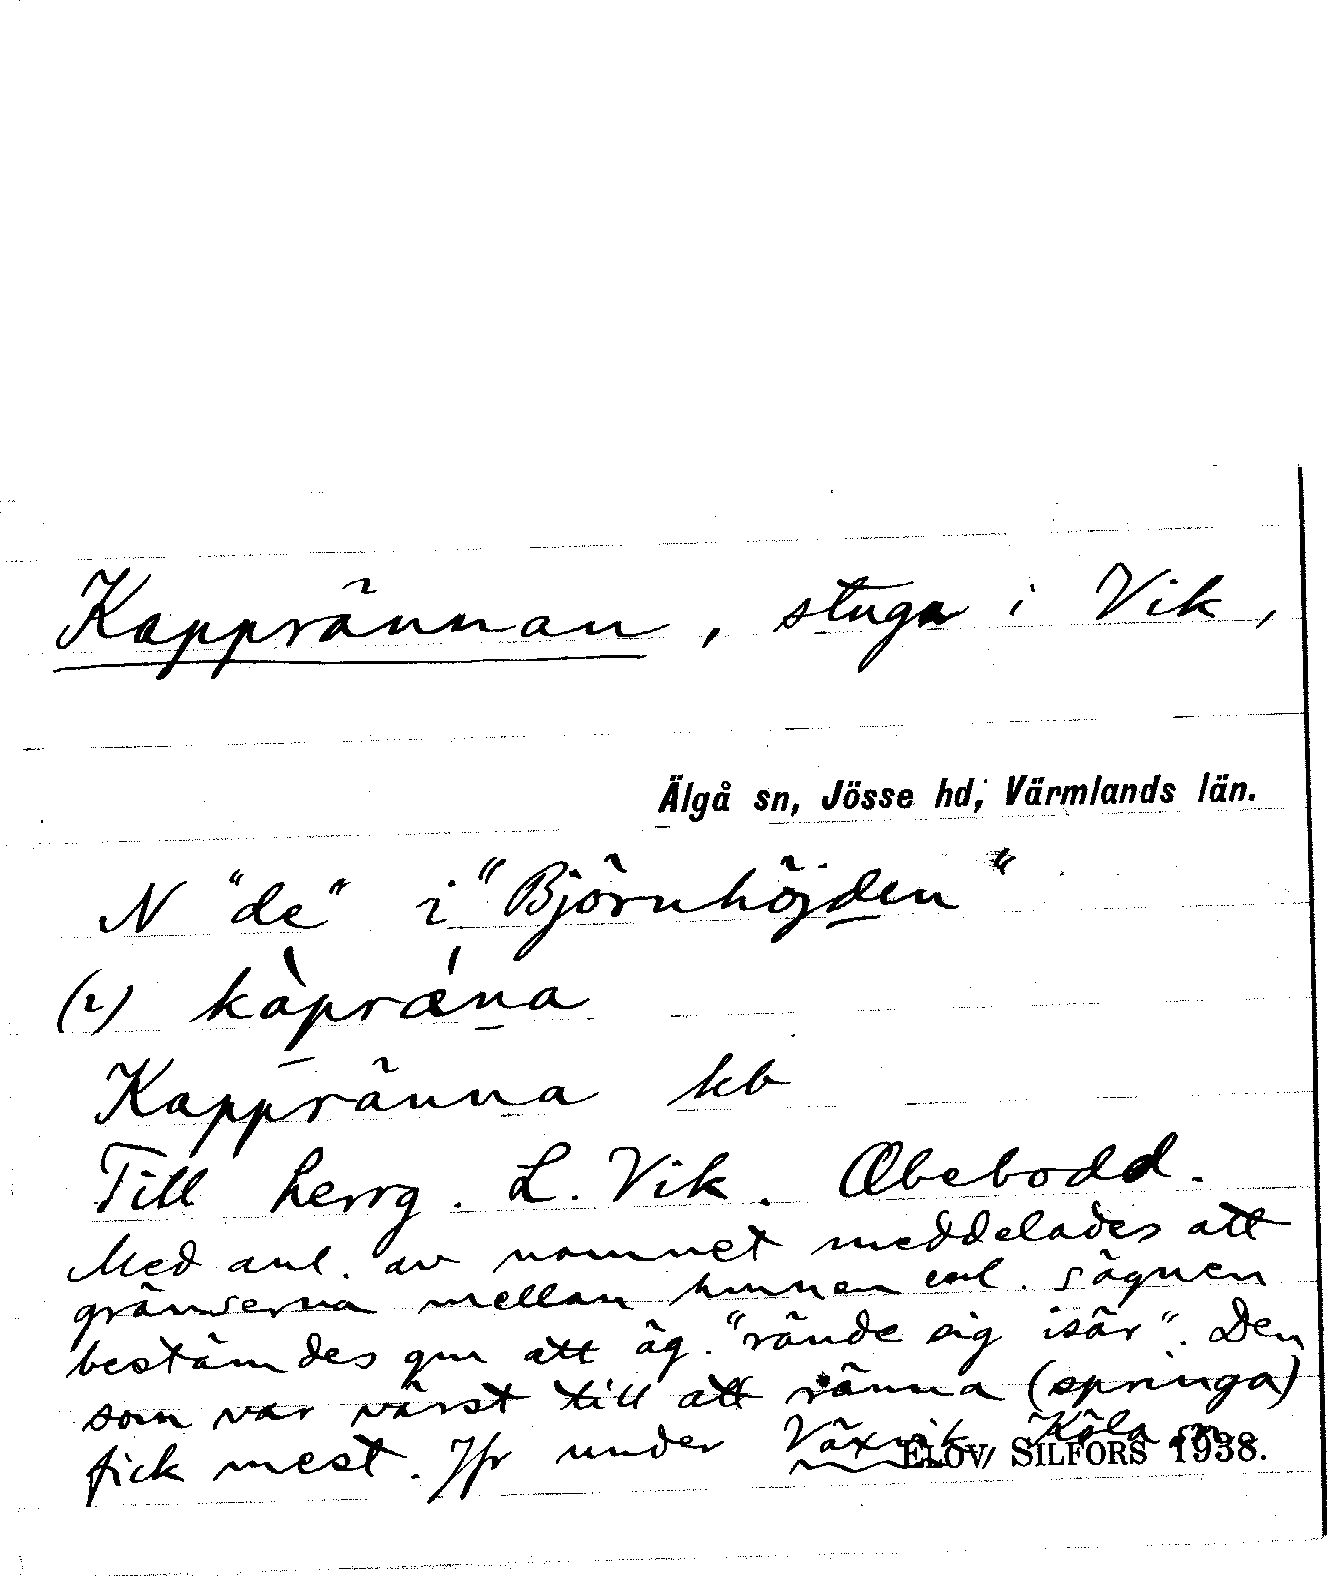 Kapprännan, stuga i Vik,
Älgå sn, Jösse hd, Värmlands län.
N "de" i "Björnhöjden"
(2) kàpræ̀na
Kappränna hb
Till herrg. L. Vik. Obebodd.
Med anl. av namnet meddelades att
gränserna mellan hmnen enl. sägnen
bestämdes gm att äg. "rände sig isär". Den
som var värst till att ränna (springa)
fick mest. Jfr under Växvik Köla sn
ELOV SILFORS 1938.